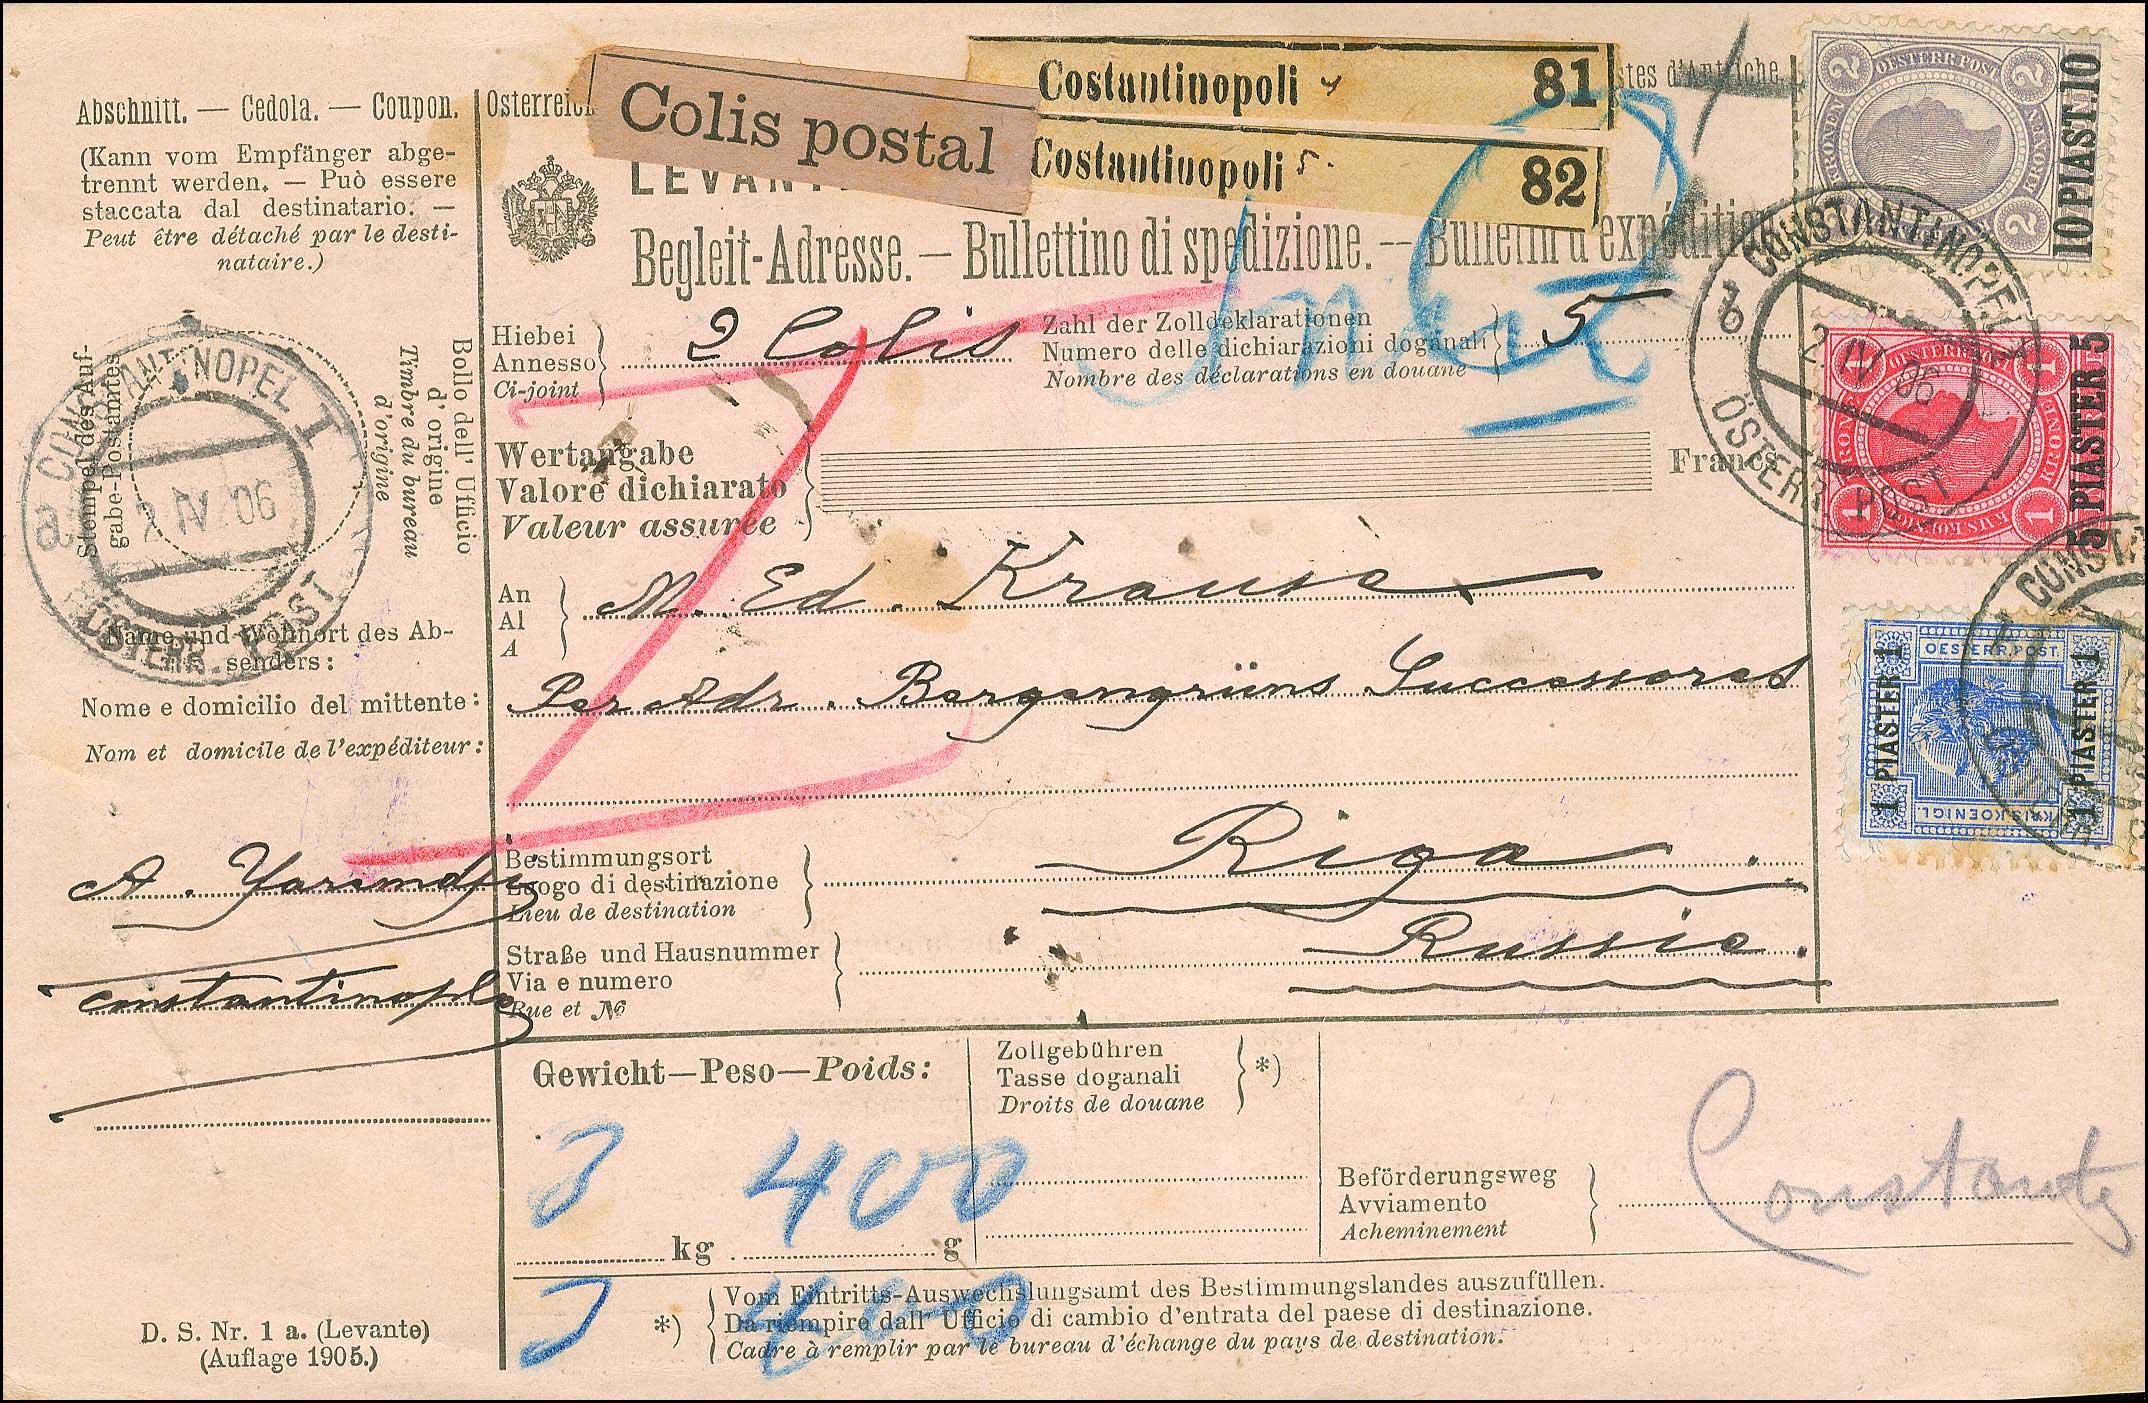 Abschnitt. — Cedola. — Coupon.
(Kann vom Empfänger abge-
trennt werden. — Può essere
staccata dal destinatario. —
Peut être détaché par le desti-
nataire.)
Colis postal
Costantinopoli 81
Costantinopoli 82
LEVANT
Begleit-Adresse. — Bullettino di spedizione. — Bulletin d'expédition
Hiebei
Annesso
Ci-joint
2 Colis
Zahl der Zolldeklarationen
Numero delle dichiarazioni doganali
Nombre des déclarations en douane
5
Wertangabe
Valore dichiarato
Valeur assurée
Francs
An
Al
A
M. Ed. Krause
Per Adr. Bergengrüns Successores
Bestimmungsort
Luogo di destinazione
Lieu de destination
Riga.
Straße und Hausnummer
Via e numero
Rue et No
Russie.
Stempel des Auf-
gabe-Postamtes
Bollo dell' Ufficio
d'origine
Timbre du bureau
d'origine
CONSTANTINOPEL I
a
2 IV 06
ÖSTERR. POST
Name und Wohnort des Ab-
senders:
Nome e domicilio del mittente:
Nom et domicile de l'expéditeur:
A. Yarmdji
Constantinople
D. S. Nr. 1 a. (Levante)
(Auflage 1905.)
Gewicht—Peso—Poids:
3 400
kg g
400
Zollgebühren
Tasse doganali
Droits de douane
*)
Beförderungsweg
Avviamento
Acheminement
*)
Vom Eintritts-Auswechslungsamt des Bestimmungslandes auszufüllen.
Da riempire dall' Ufficio di cambio d'entrata del paese di destinazione.
Cadre à remplir par le bureau d'échange du pays de destination.
OESTERR. POST
2 KRONEN 2
10 PIAST. 10
CONSTANTINOPEL I
2 IV 06
ÖSTERR. POST
1 KRONE 1
5 PIASTER 5
OESTERR. POST.
1 PIASTER 1
1 PIASTER 1
KAIS. KOENIGL.